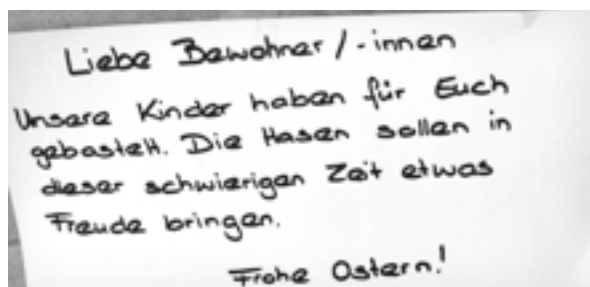 Liebe Bewohner/-innen
Unsere Kinder haben für Euch
gebastelt. Die Hasen sollen in
dieser schwierigen Zeit etwas
Freude bringen.
Frohe Ostern!